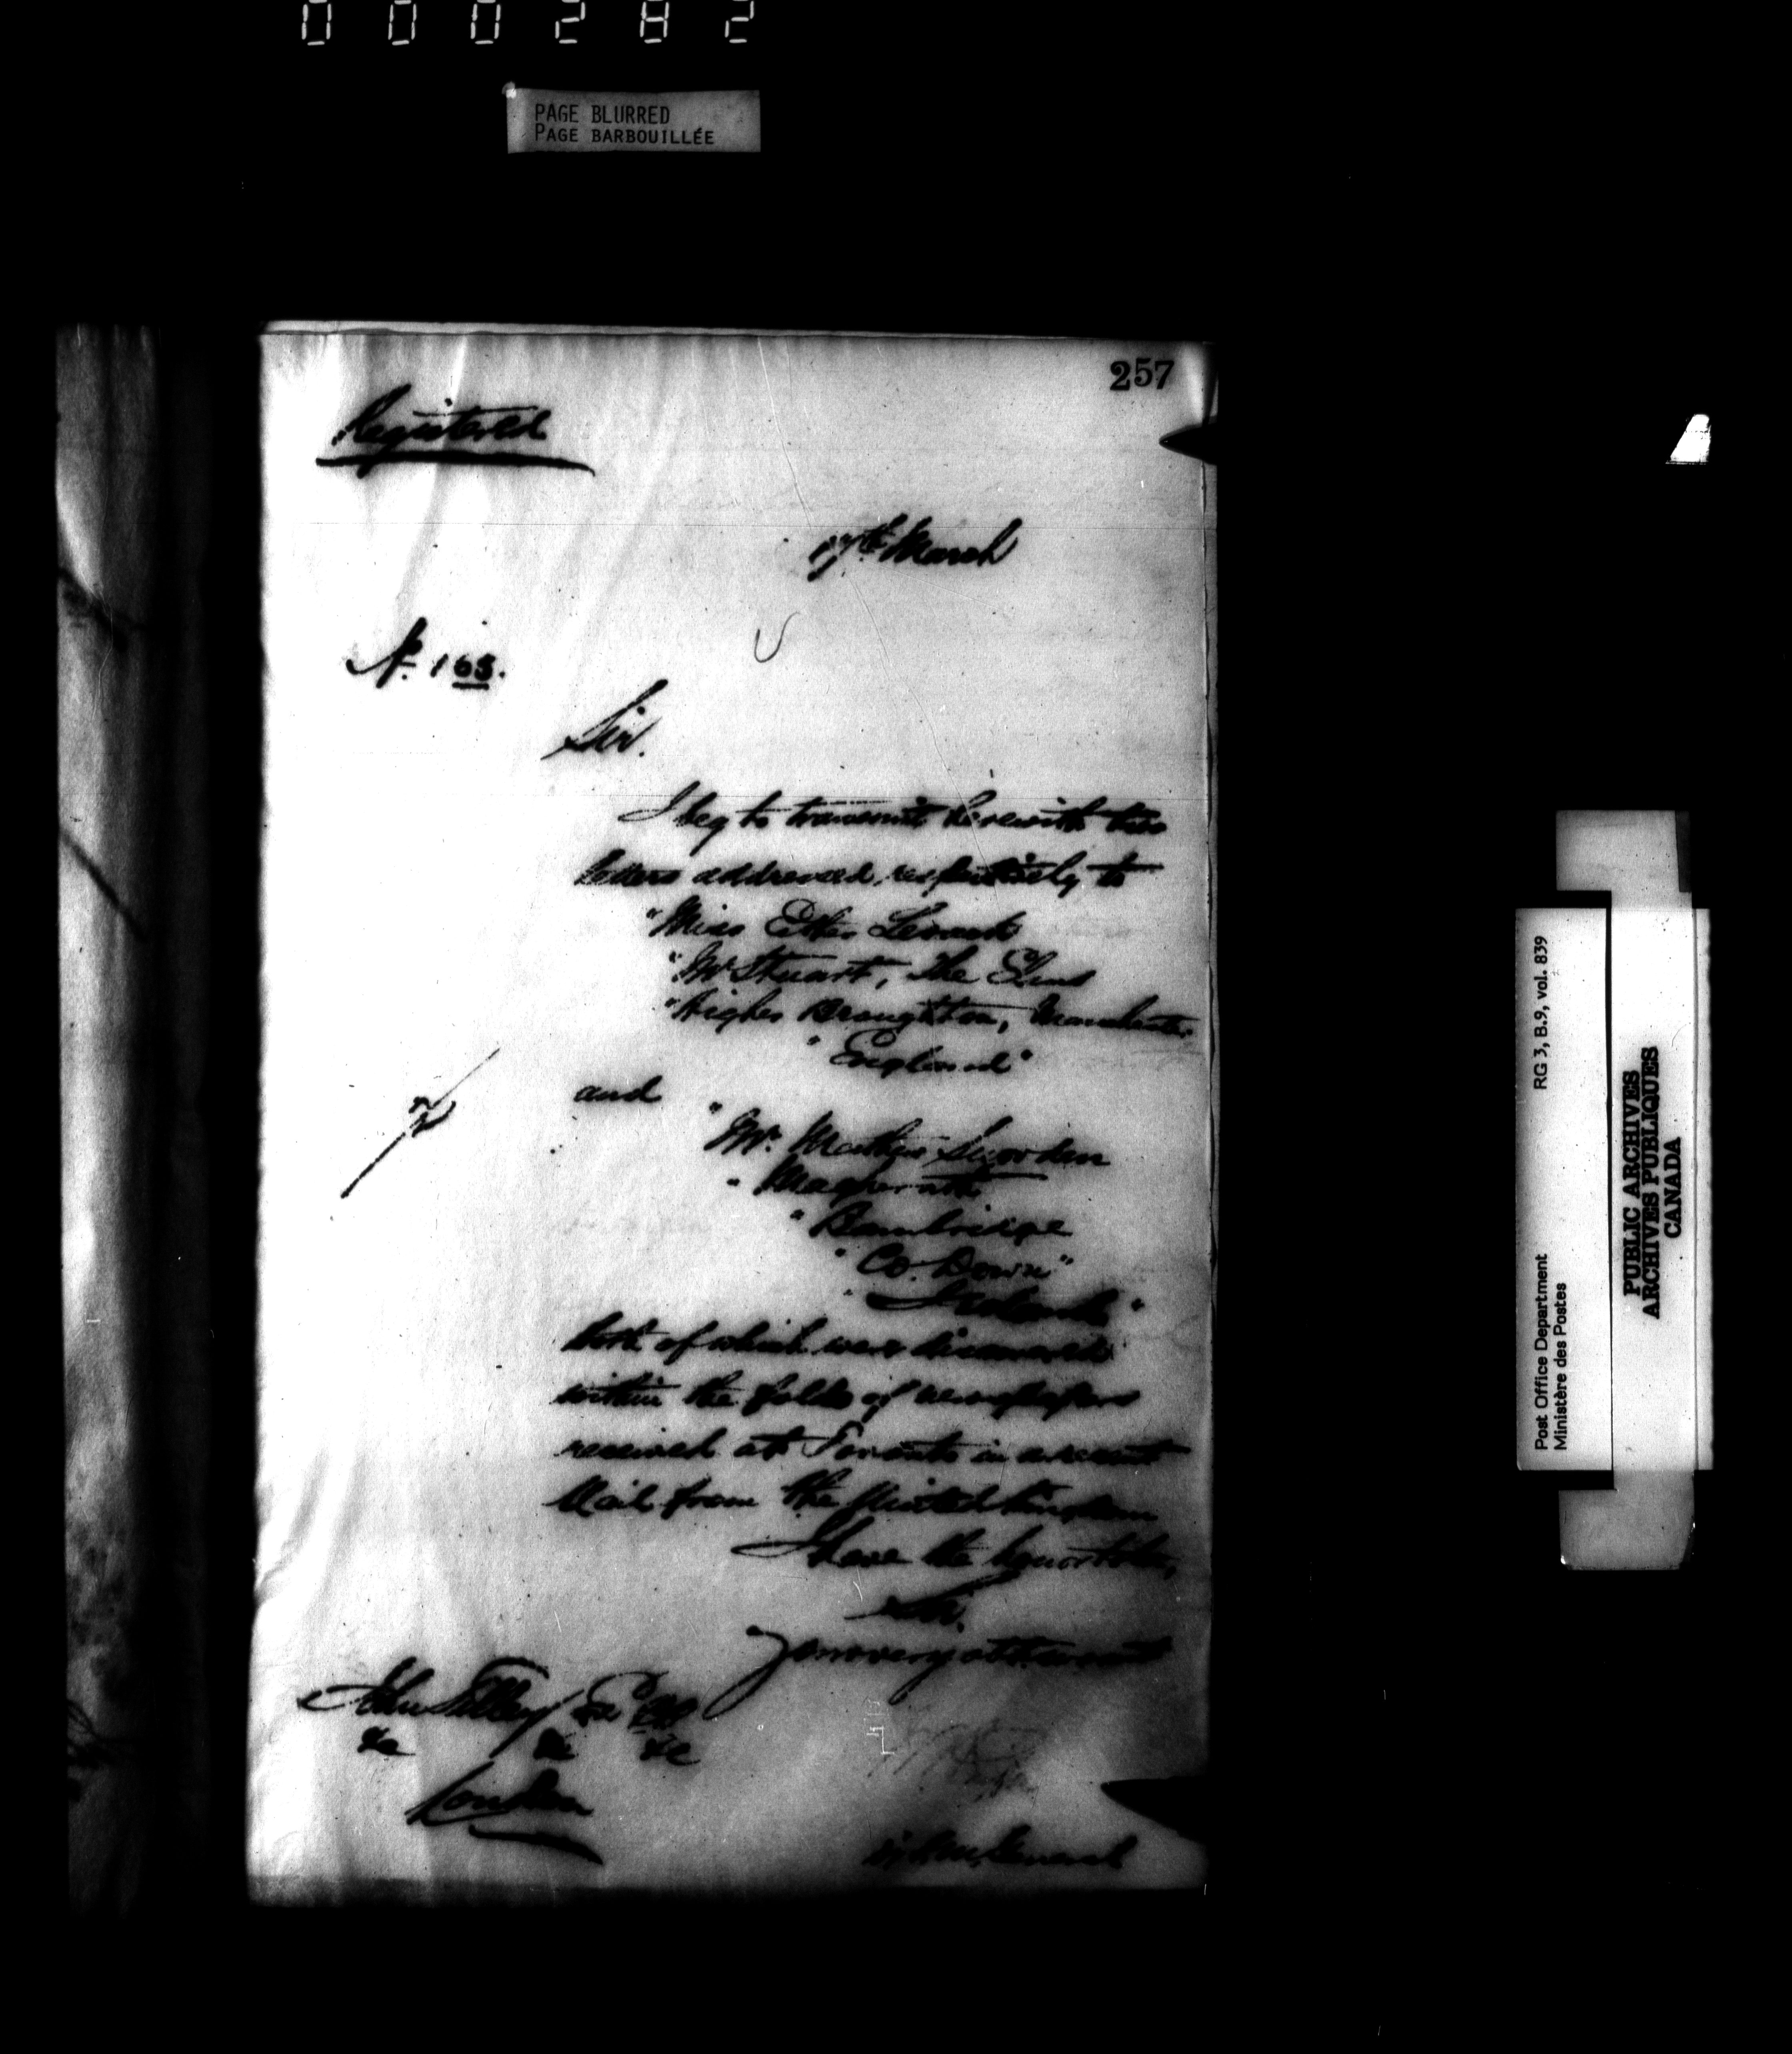 000282
PAGE BLURRED
PAGE BARBOUILLÉE
257
Registered
17th March
No. 163.
Sir.
I beg to transmit herewith two
letters addressed respectively to
"Miss
"Mr Stuart, The Elms
"Higher Broughton, Manchester
"England"
and
"Mr. Mathew
"
"Banbridge
"Co. Down"
"Ireland"
both of which were discovered
within the folds of newspapers
received at Toronto in a recent
Mail from the United Kingdom
I have the honor to be,
Sir.
Your very obt. servant
John Tilley Esq CB
&c &c &c
London
General
RG 3, B.9, vol. 839
Post Office Department
Ministère des Postes
PUBLIC ARCHIVES
ARCHIVES PUBLIQUES
CANADA